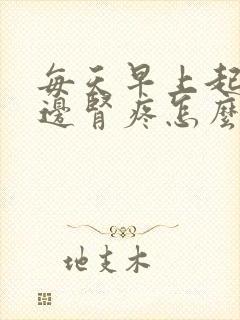 每天早上起
邊腎疼怎麼
地支木